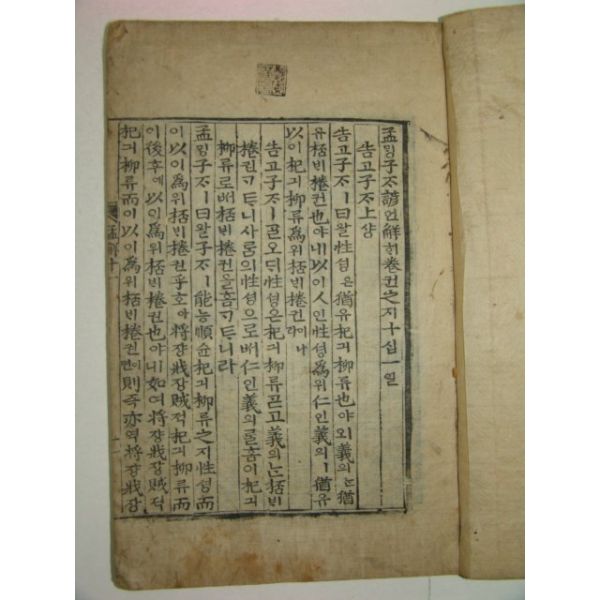 孟ᄆᆡᆼ子ᄌᆞ諺언解ᄒᆡ卷권之지十십一일
告고子ᄌᆞ上샹
告고子ᄌᆞㅣ曰왈性셩은猶유杞긔柳류也야ㅣ오義의ᄂᆞᆫ猶
유桮비棬권也야ㅣ니以이人인性셩爲위仁인義의ㅣ猶유
以이杞긔柳류爲위桮비棬권이니라
告고子ᄌᆞㅣᄀᆞᆯ오ᄃᆡ性셩은杞긔柳류ᄀᆞᆮ고義의ᄂᆞᆫ桮비
棬권ᄀᆞᄐᆞ니사ᄅᆞᆷ의性셩으로ᄡᅥ仁인義의ᄅᆞᆯ홈이杞긔
柳류로ᄡᅥ桮비棬권을홈ᄀᆞᄐᆞ니라
孟ᄆᆡᆼ子ᄌᆞㅣ曰왈子ᄌᆞㅣ能능順슌杞긔柳류之지性셩而
이以이爲위桮비棬권乎호아將쟝戕장賊적杞긔柳류而
이後후에以이爲위桮비棬권也야ㅣ니如여將쟝戕장賊적
杞긔柳류而이以이爲위桮비棬권이면則즉亦역將쟝戕장